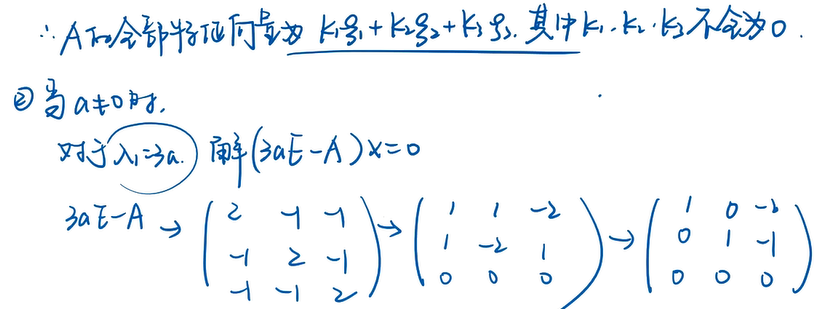 ∴ A的全部特征向量为 k₁ξ₁+k₂ξ₂+k₃ξ₃. 其中k₁.k₂.k₃不全为0.
② 当a≠0时.
对于λ₁=3a. 解(3aE-A)x=0
3aE-A → ( 2 -1 -1 ) → ( 1 1 -2 ) → ( 1 0 -1 )
( -1 2 -1 ) ( 1 -2 1 ) ( 0 1 -1 )
( -1 -1 2 ) ( 0 0 0 ) ( 0 0 0 )